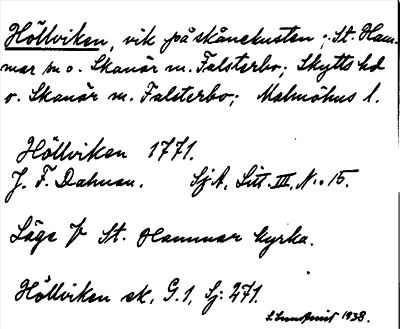 Höllviken, vik på skånekusten; St. Ham-
mar sn o. Skanör m. Falsterbo; Skytts hd
o. Skanör m. Falsterbo; Malmöhus l.
Höllviken 1771.
J. F. Dahman. SjA, Litt. III, No 15.
Läge V St. Hammar kyrka.
Höllviken ek, G.1, Sj: 271.
1938.